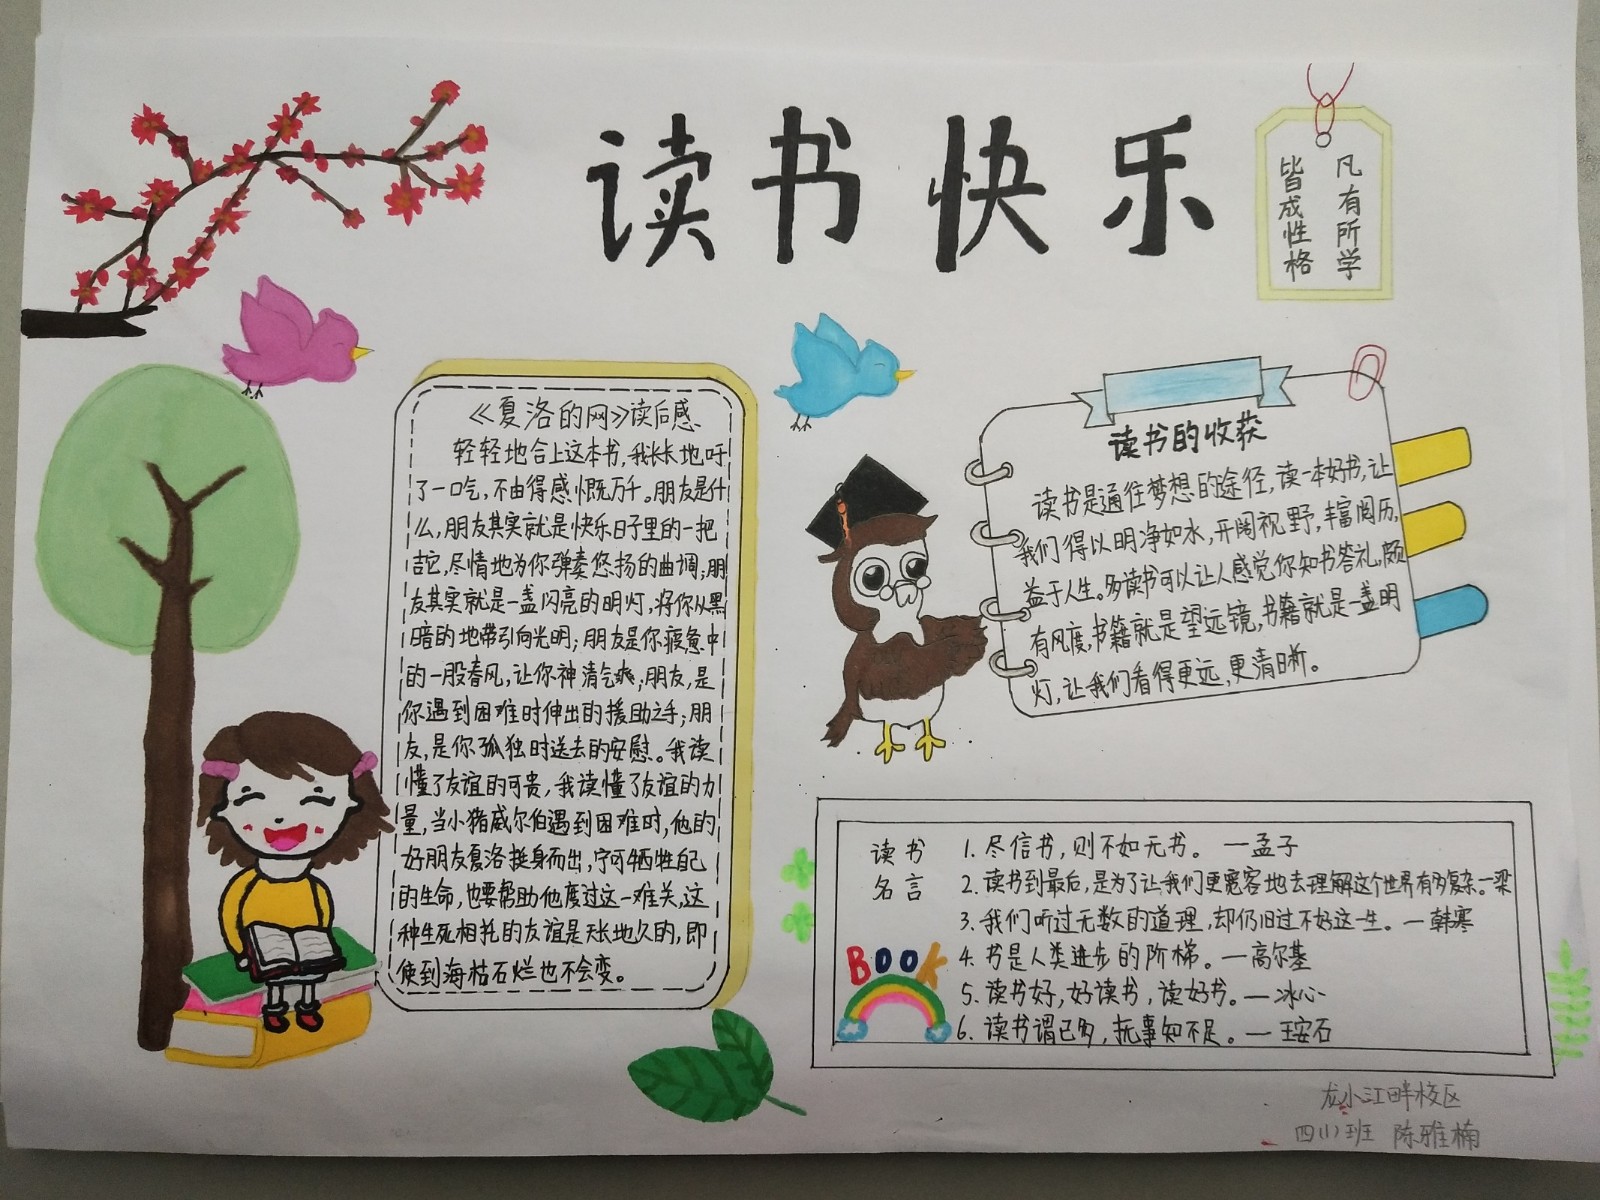 读书快乐
凡有所学
皆成性格
《夏洛的网》读后感
轻轻地合上这本书,我长长地吁
了一口气,不由得感慨万千。朋友是什
么,朋友其实就是快乐日子里的一把
吉它,尽情地为你弹奏悠扬的曲调;朋
友其实就是一盏闪亮的明灯,将你从黑
暗的地带引向光明;朋友是你疲惫中
的一股春风,让你神清气爽;朋友,是
你遇到困难时伸出的援助之手;朋
友,是你孤独时送去的安慰。我读
懂了友谊的可贵,我读懂了友谊的力
量,当小猪威尔伯遇到困难时,他的
好朋友夏洛挺身而出,宁可牺牲自己
的生命,也要帮助他度过这一难关,这
种生死相托的友谊是天长地久的,即
使到海枯石烂也不会变。
读书的收获
读书是通往梦想的途径,读一本好书,让
我们得以明净如水,开阔视野,丰富阅历,
益于人生。多读书可以让人感觉你知书答礼,颇
有风度,书籍就是望远镜,书籍就是一盏明
灯,让我们看得更远,更清晰。
读书
名言
1. 尽信书,则不如无书。—孟子
2. 读书到最后,是为了让我们更宽容地去理解这个世界有多复杂。—梁
3. 我们听过无数的道理,却仍旧过不好这一生。—韩寒
4. 书是人类进步的阶梯。—高尔基
5. 读书好,好读书,读好书。—冰心
6. 读书谓已多,抚事知不足。—王安石
BOOK
龙小江畔校区
四(1)班 陈雅楠